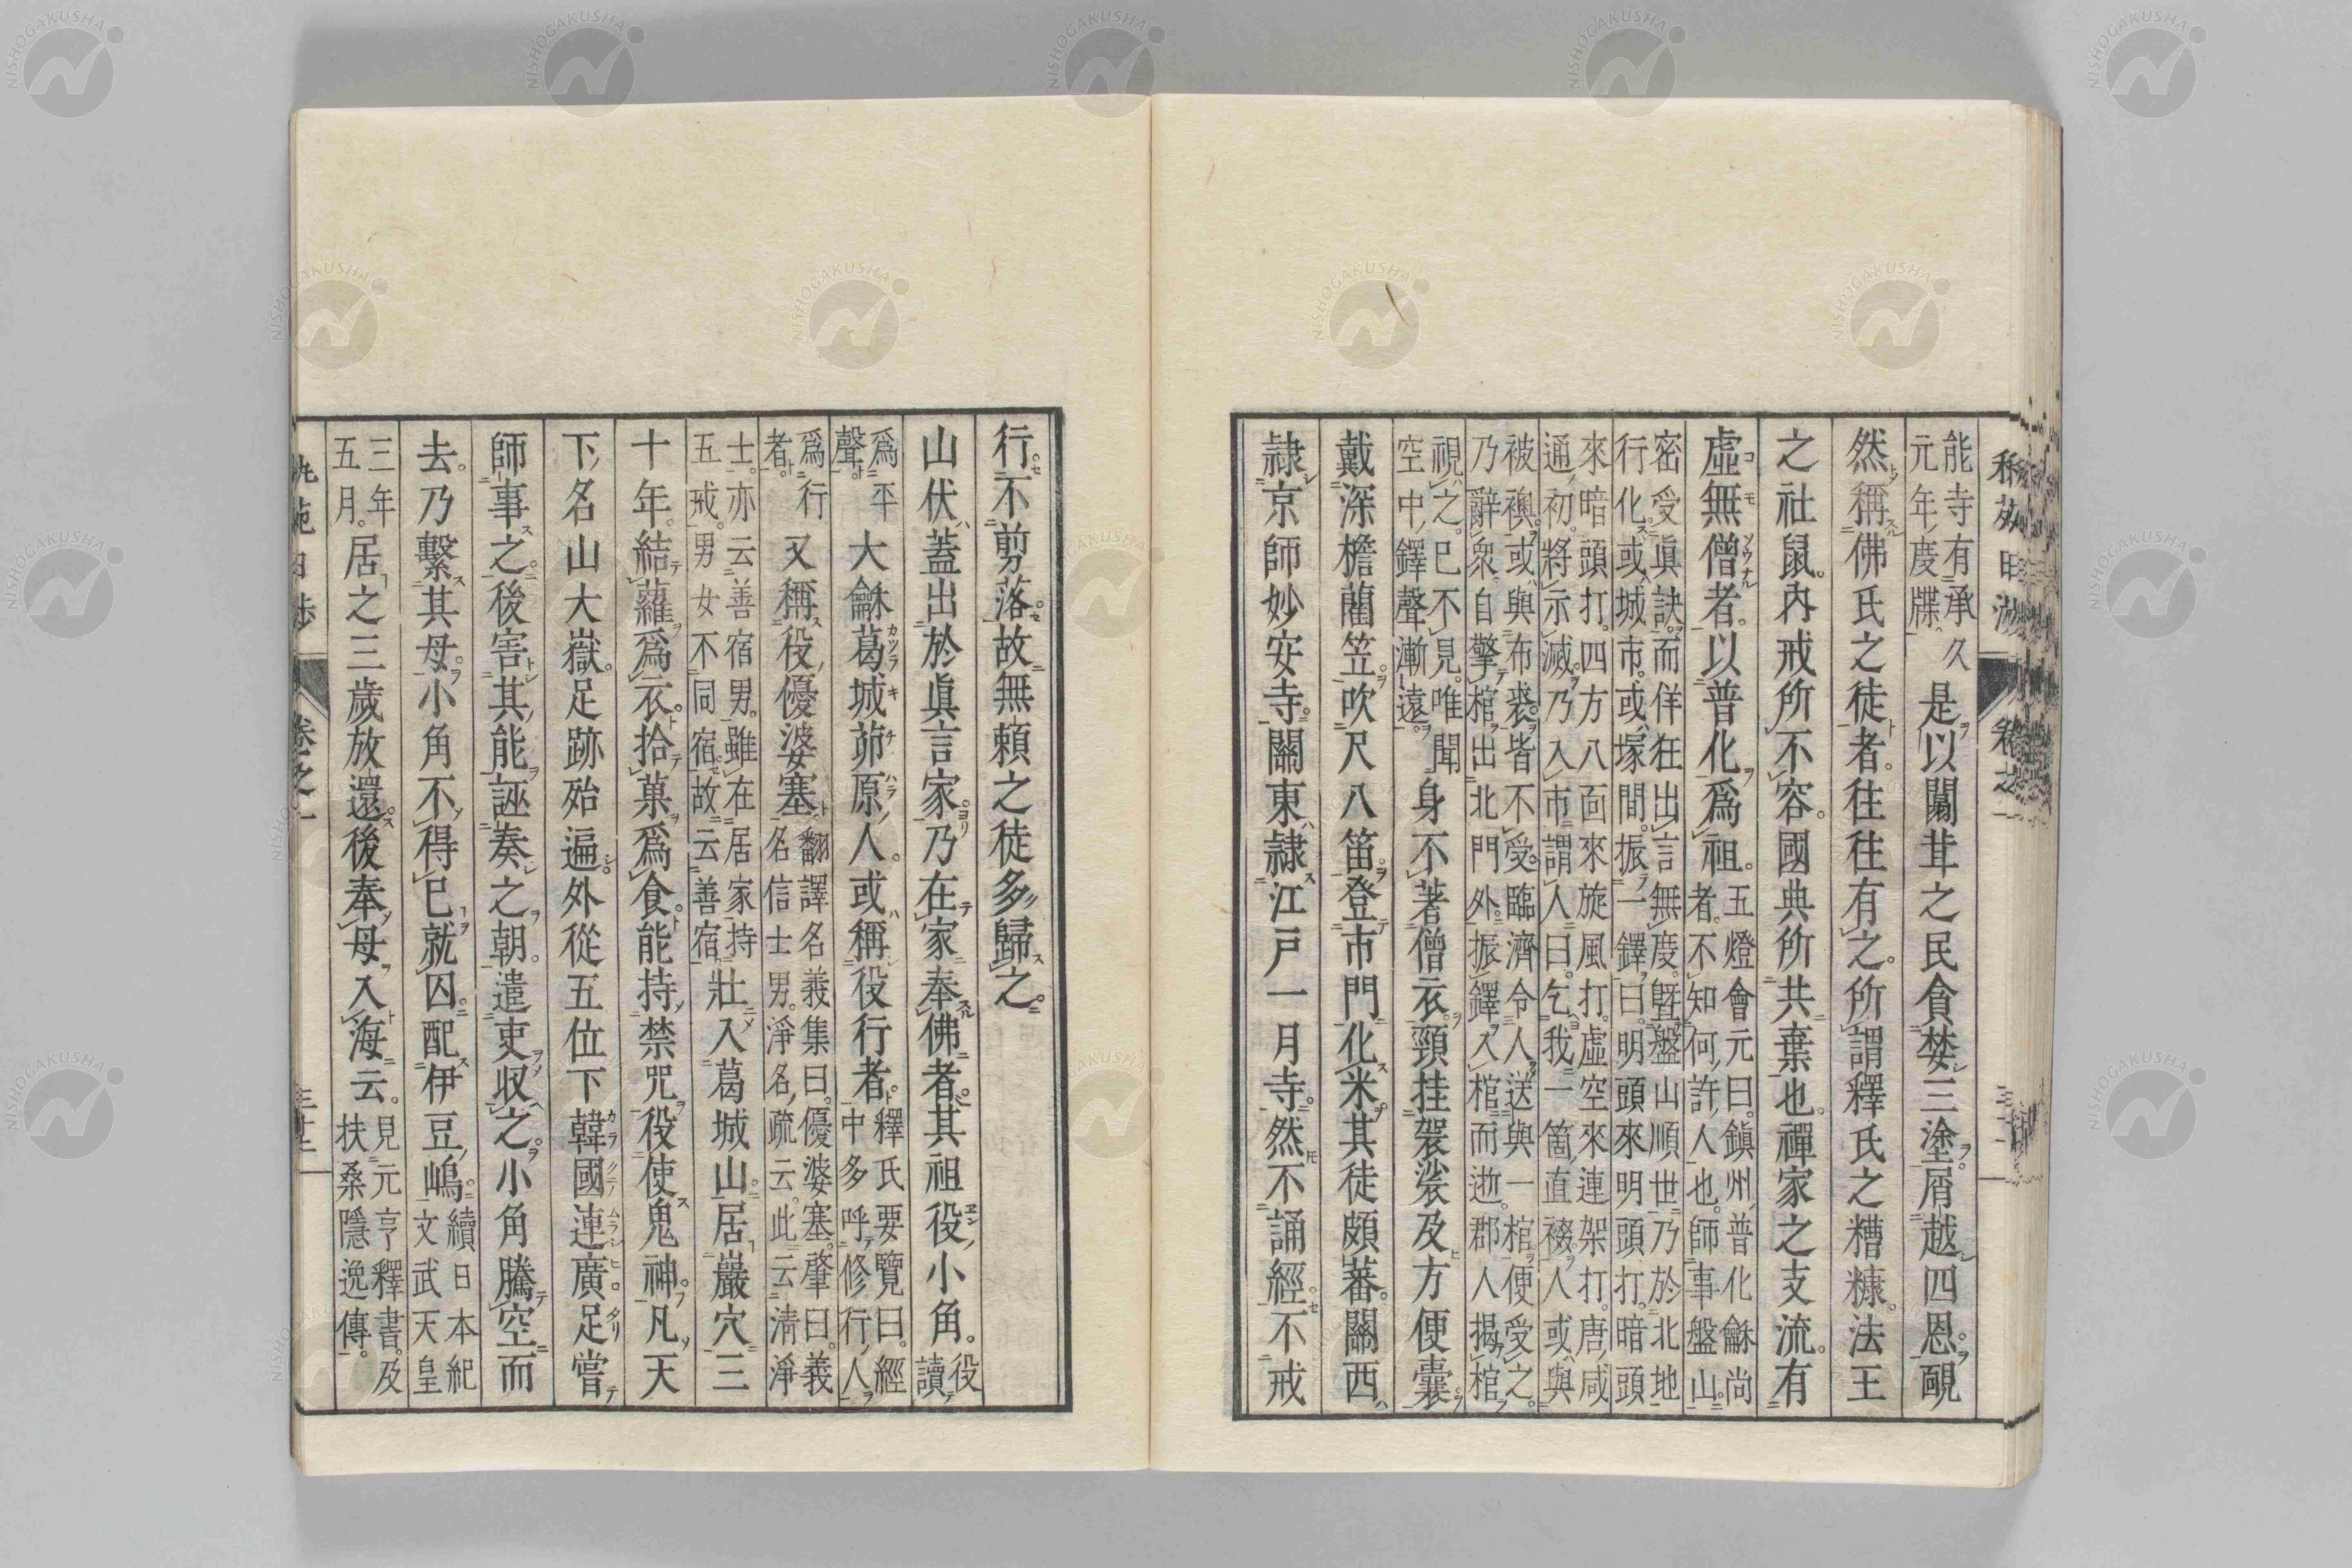 能寺有承久
元年度牒
是以闒茸之民貪婪三塗屑越四恩靦
然稱佛氏之徒者往往有之所謂釋氏之糟糠法王
之社鼠內戒所不容國典所共棄也禪家之支流有
虛無僧者以普化爲祖
五燈會元曰鎭州普化龢尚
者不知何許人也師事盤山
密受眞訣而佯狂出言無度曁盤山順世乃於北地
行化或城市或塚間振一鐸曰明頭來明頭打暗頭
來暗頭打四方八面來旋風打虛空來連架打唐咸
通初將示滅乃入市謂人曰乞我一箇直裰人或與
被襖或與布裘皆不受臨濟令人送與一棺便受之
乃辭衆自擎棺出北門外振鐸入棺而逝郡人揭棺
視之已不見唯聞
空中鐸聲漸遠
身不著僧衣頸挂袈裟及方便囊
戴深檐藺笠吹尺八笛登市門化米其徒頗蕃關西
隷京師妙安寺關東隷江戸一月寺然不誦經不戒
行不剪落故無賴之徒多歸之
山伏蓋出於眞言家乃在家奉佛者其祖役小角
役讀
爲平
聲
大龢葛城茆原人或稱役行者
釋氏要覽曰經
中多呼修行人
爲行
者
又稱役優婆塞
翻譯名義集曰優婆塞肇曰義
名信士男淨名疏云此云淸淨
士亦云善宿男雖在居家持
五戒男女不同宿故云善宿
壯入葛城山居巖穴三
十年結蘿爲衣拾菓爲食能持禁咒役使鬼神凡天
下名山大嶽足跡殆遍外從五位下韓國連廣足嘗
師事之後害其能誣奏之朝遣吏収之小角騰空而
去乃繫其母小角不得已就囚配伊豆嶋
續日本紀
文武天皇
三年
五月
居之三歲放還後奉母入海云
見元亨釋書及
扶桑隱逸傳
卷之一